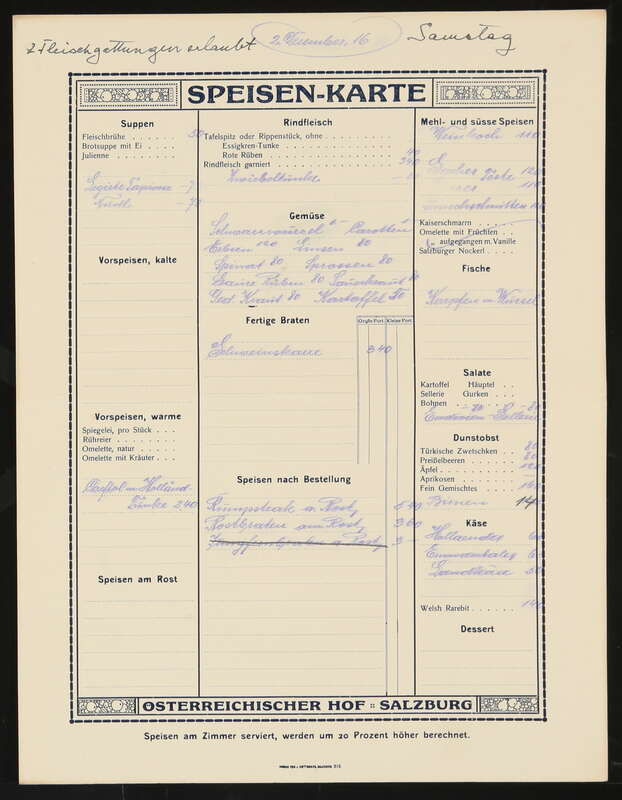 2 Fleischgattungen erlaubt
2. Dezember. 16
Samstag
SPEISEN-KARTE
Suppen
Fleischbrühe . . . . . . 50
Brotsuppe mit Ei . . . .
Julienne . . . . . . . .
Legierte Tapioca
Nudl
Vorspeisen, kalte
Vorspeisen, warme
Spiegelei, pro Stück . . .
Rühreier . . . . . . . .
Omelette, natur . . . . .
Omelette mit Kräuter . . .
Holländ.
Tunke 2 40
Speisen am Rost
Rindfleisch
Tafelspitz oder Rippenstück, ohne . . . . . . . . .
Essigkren-Tunke . . . . . . . . .
Rote Rüben . . . . . . . . . 40
Rindfleisch garniert . . . . . . . . . 3 40
Zwiebeltunke
Gemüse
Schwarzwurzel Carotten
Erbsen 120 Linsen 80
Spinat 80 Sprossen 80
Saure Rüben 80 Sauerkraut 80
Ged. Kraut 80 Kartoffel 50
Fertige Braten
Große Port. Kleine Port.
3 40
Speisen nach Bestellung
Rumpsteak a. Rost 5 40
Rostbraten am Rost 3 60
Jungfernbraten a Rost 3 –
Mehl- und süsse Speisen
110
120
110
Kaiserschmarrn . . .
Omelette mit Früchten . .
" aufgegangen m. Vanille
Salzburger Nockerl . . . .
Fische
Karpfen in Wurzel
Salate
Kartoffel Häuptel . .
Sellerie Gurken . . .
Bohnen . . 70 80
Endivien Sellerie 80
Dunstobst
Türkische Zwetschken . . 80
Preißelbeeren . . . . . 80
Äpfel . . . . . . . . 120
Aprikosen . . . . . .
Fein Gemischtes . . . . 160
Birnen 14
Käse
Hollaender 60
Emmenthaler 60
50
Welsh Rarebit . . . . . 140
Dessert
ÖSTERREICHISCHER HOF :: SALZBURG
Speisen am Zimmer serviert, werden um 20 Prozent höher berechnet.